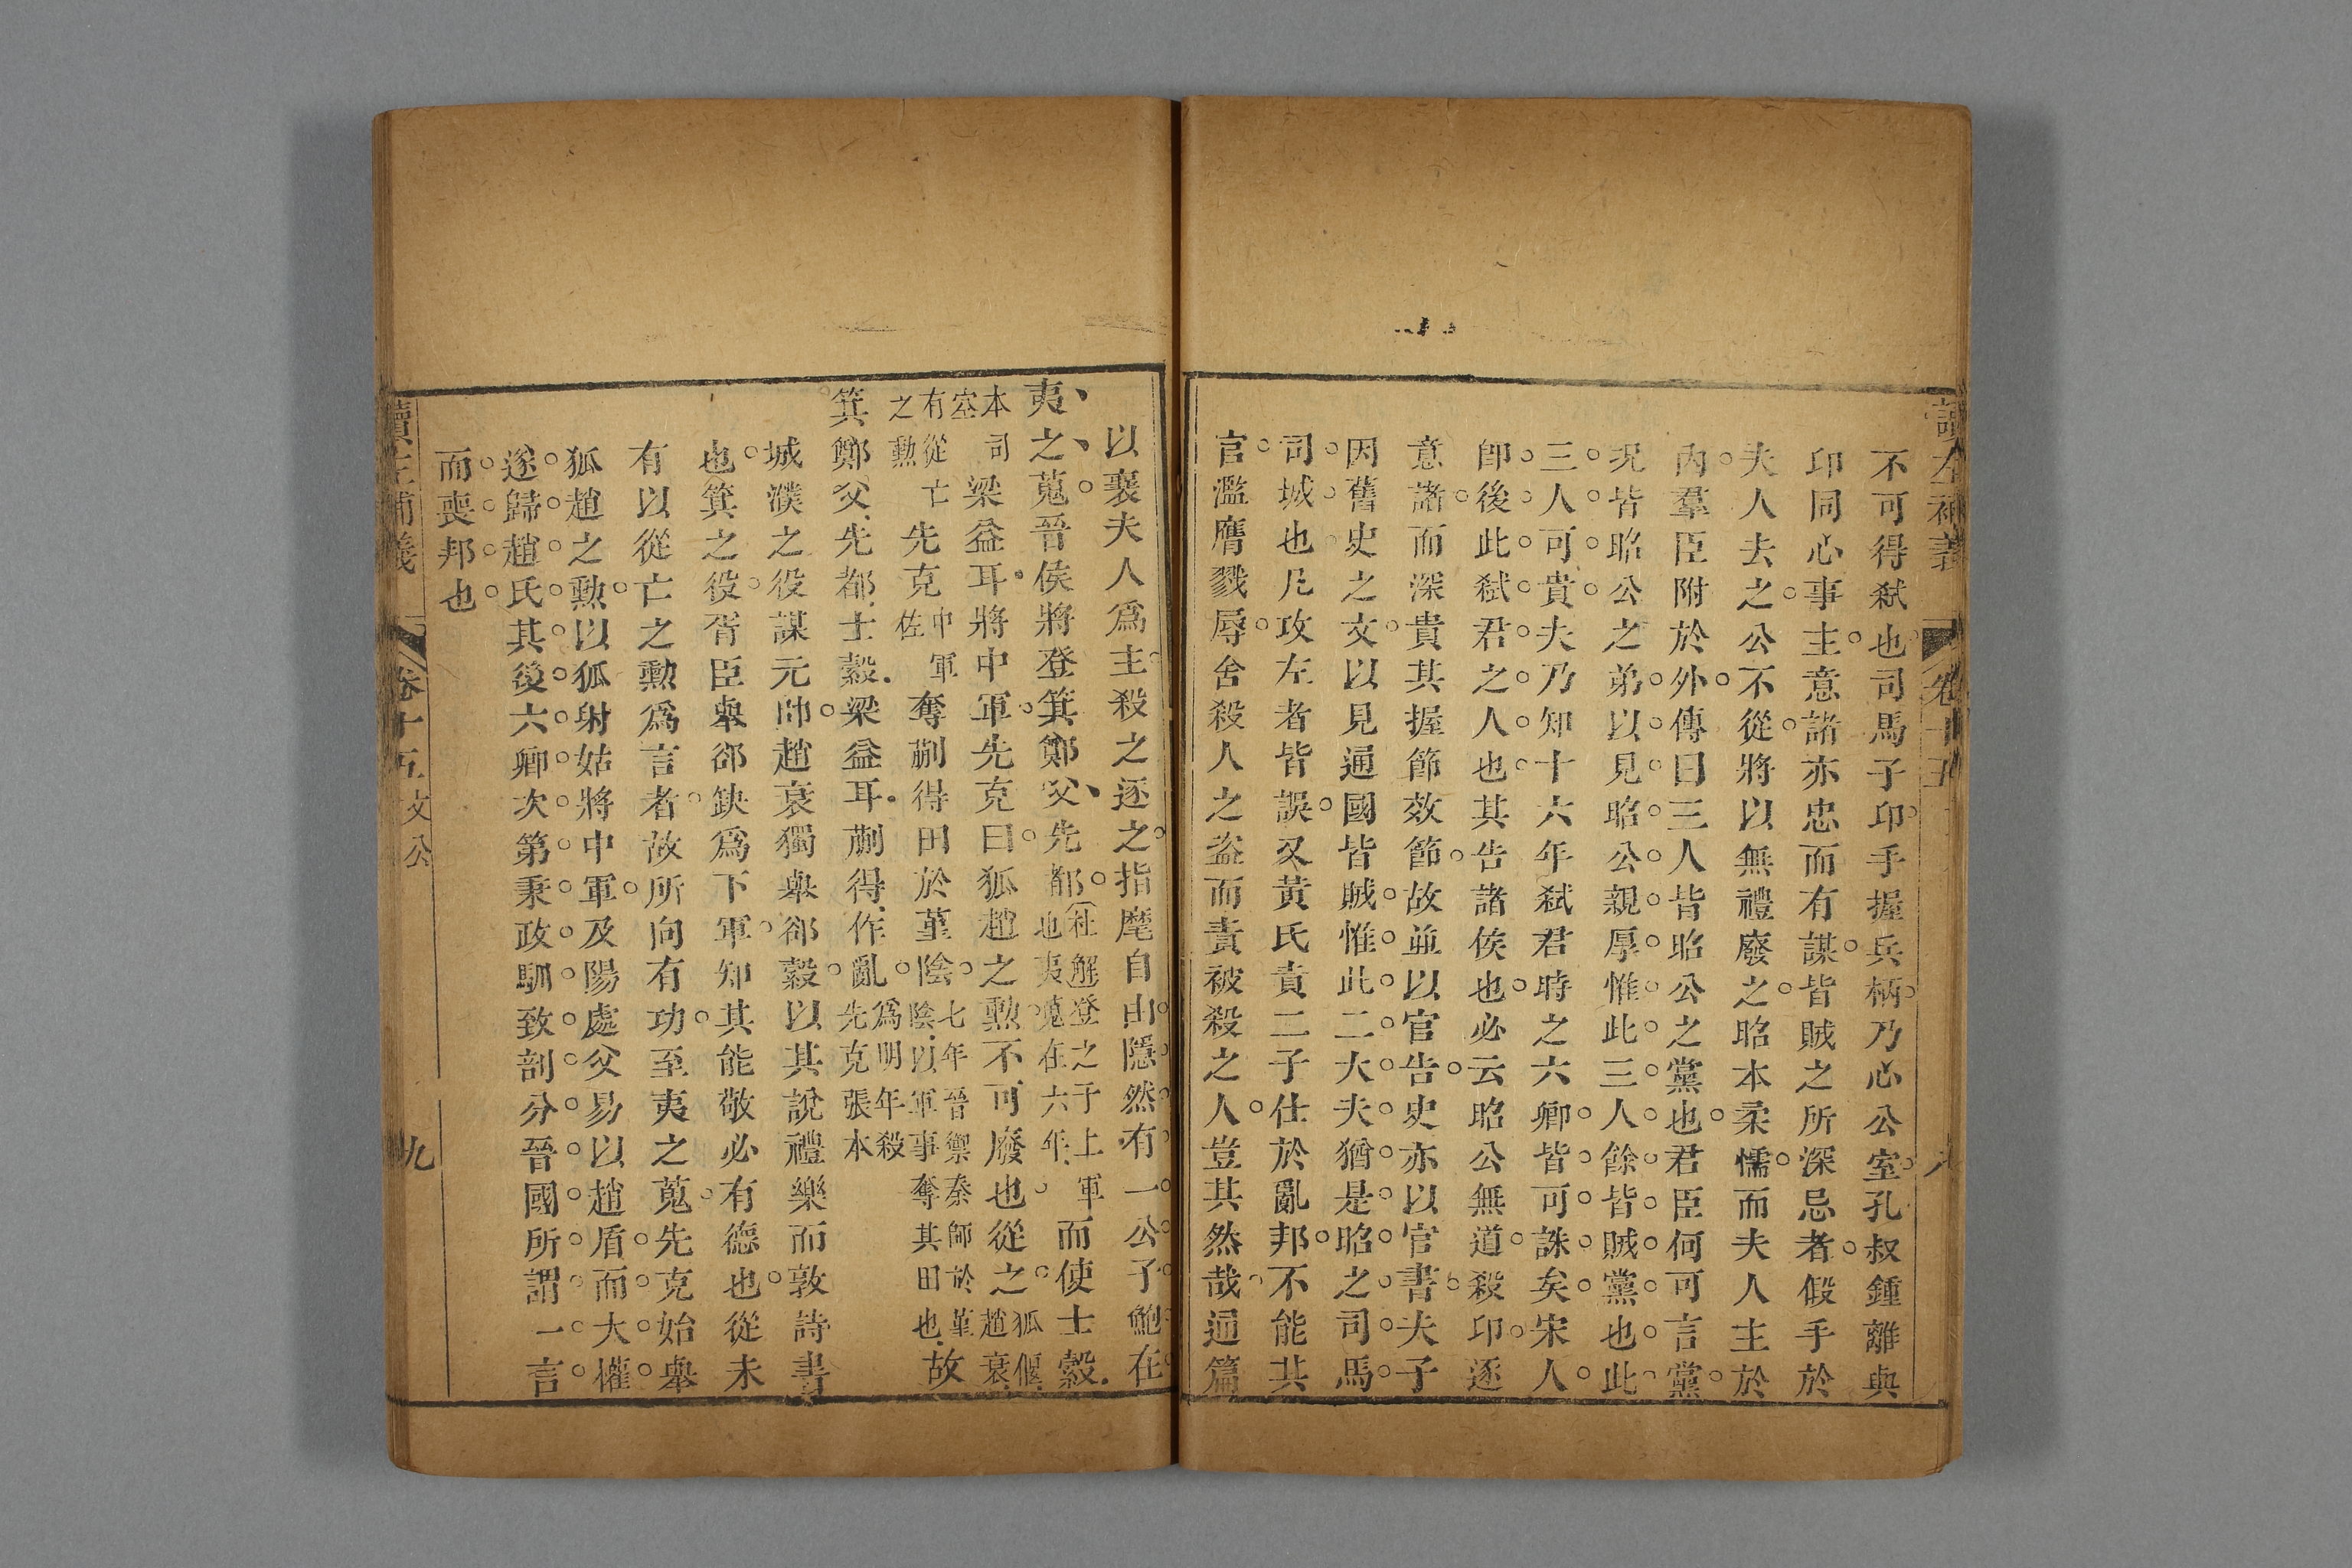 讀左補義 卷十五 八
不可得弒也司馬子印手握兵柄乃心公室孔叔鍾離與
印同心事主意諸亦忠而有謀皆賊之所深忌者假手於
夫人去之公不從將以無禮廢之昭本柔懦而夫人主於
內羣臣附於外傳曰三人皆昭公之黨也君臣何可言黨
況皆昭公之弟以見昭公親厚惟此三人餘皆賊黨也此
三人可貴夫乃知十六年弒君時之六卿皆可誅矣宋人
卽後此弒君之人也其告諸侯也必云昭公無道殺印逐
意諸而深貴其握節效節故並以官告史亦以官書夫子
因舊史之文以見通國皆賊惟此二大夫猶是昭之司馬
司城也凡攻左者皆誤又黃氏責二子仕於亂邦不能共
官濫膺戮辱舍殺人之盜而責被殺之人豈其然哉通篇
以襄夫人爲主殺之逐之指麾自由隱然有一公子鮑在
夷之蒐晉侯將登箕鄭父先都杜解登之于上軍也夷蒐在六年而使士縠
本司空梁益耳將中軍先克曰狐趙之勲不可廢也從之狐偃趙衰
有從亡之勲先克中軍佐奪蒯得田於堇陰七年晉禦秦師於堇陰以軍事奪其田也故
箕鄭父先都士縠梁益耳蒯得作亂爲明年殺先克張本
城濮之役謀元帥趙衰獨舉郤縠以其說禮樂而敦詩書
也箕之役胥臣舉郤缺爲下軍知其能敬必有德也從未
有以從亡之勲爲言者故所向有功至夷之蒐先克始舉
狐趙之勲以狐射姑將中軍及陽處父易以趙盾而大權
遂歸趙氏其後六卿次第秉政馴致剖分晉國所謂一言
而喪邦也
讀左補義 卷十五文公 九